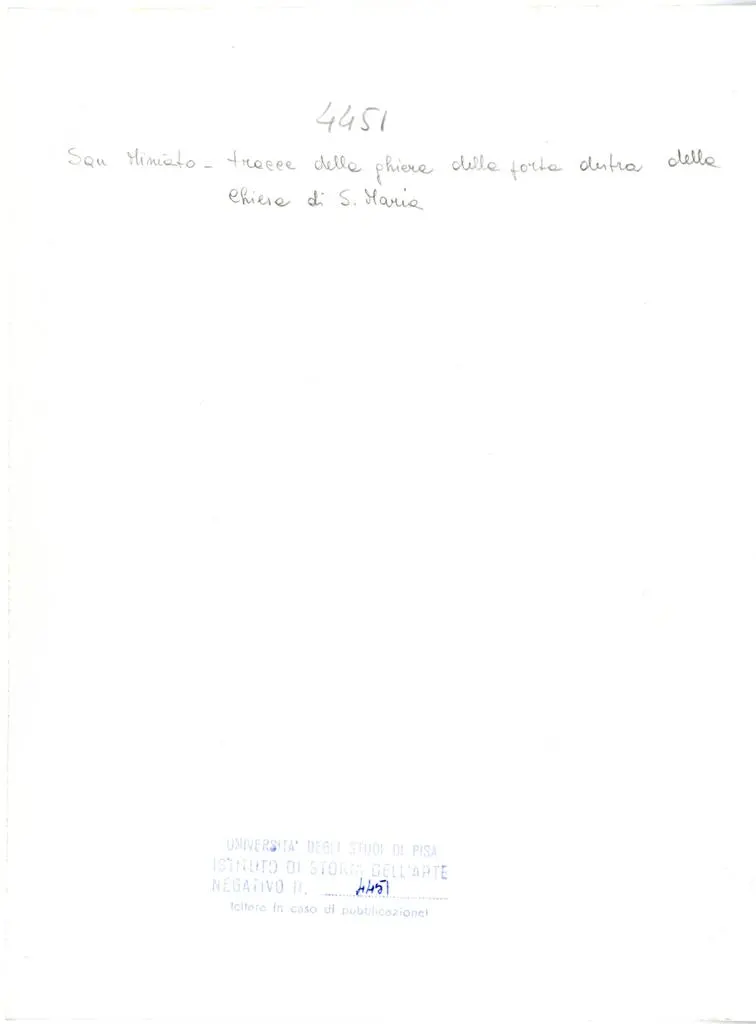 4451
San Miniato - tracce della ghiera della porta destra della
Chiesa di S. Maria
UNIVERSITA' DEGLI STUDI DI PISA
ISTITUTO DI STORIA DELL'ARTE
NEGATIVO N. 4451
(citare in caso di pubblicazione)